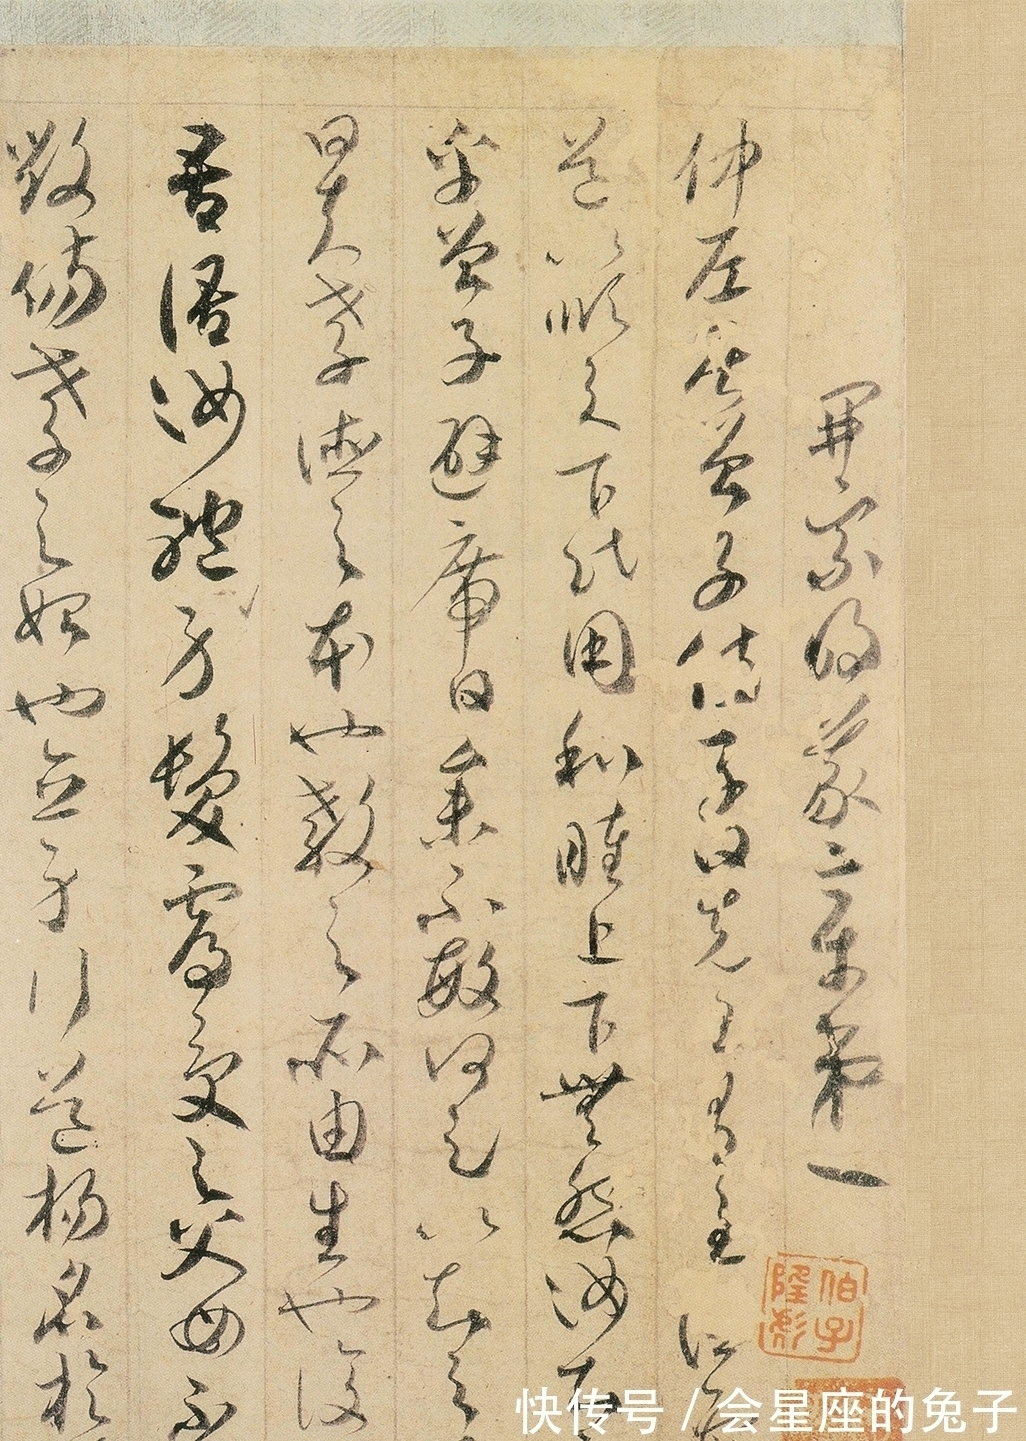 開宗明義章第一
仲尼居曾子侍子曰先王有至德
道以順天下民用和睦上下無怨汝
乎曾子避席曰參不敏何足以知之
曰夫孝德之本也教之所由生也復
吾語汝體身髮膚受之父母不
毀傷孝之始也立身行道揚名於
快传号 / 会星座的兔子